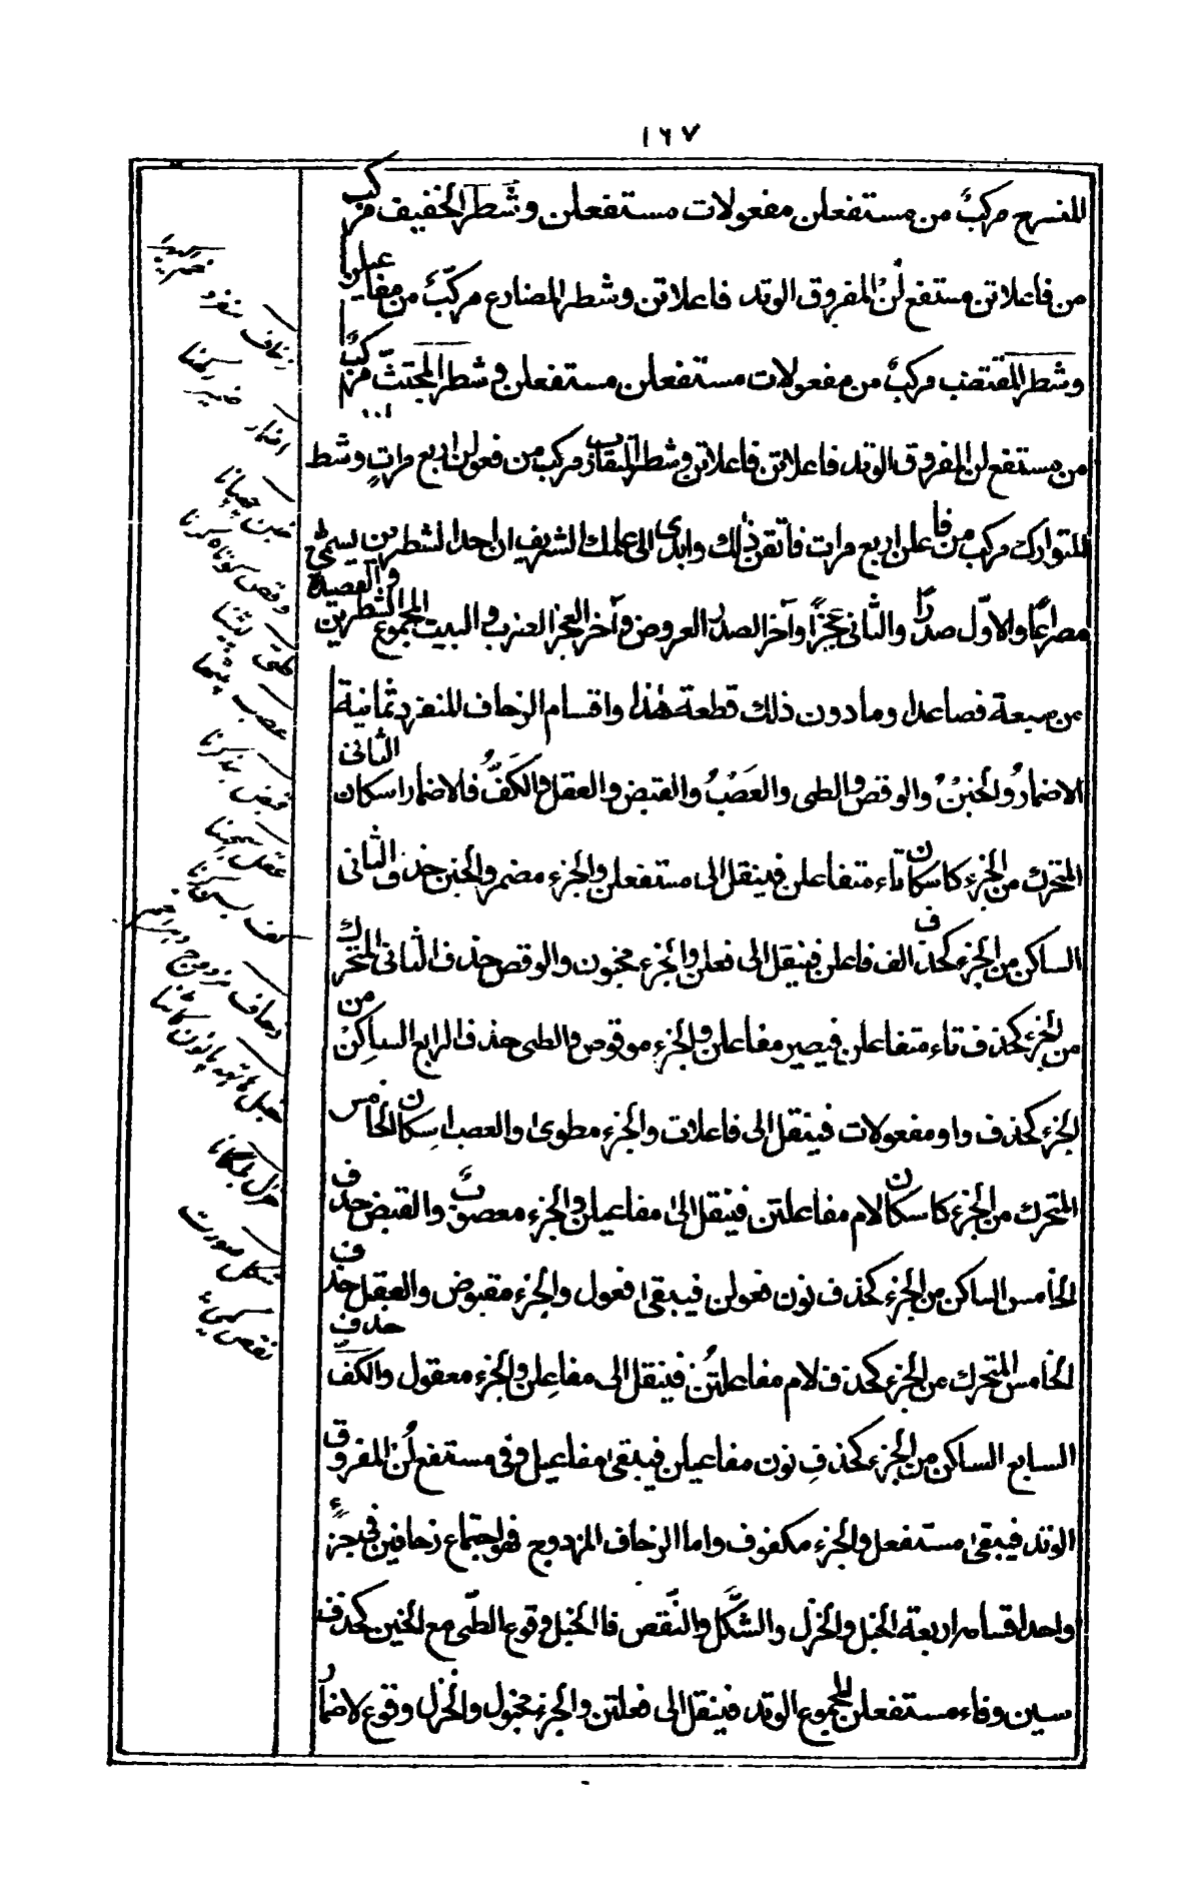 ١٦٧
المنسرح مركبٌ من مستفعلن مفعولات مستفعلن وشطر الخفيف مركب
من فاعلاتن مستفع لن المفروق الوتد فاعلاتن وشطر المضارع مركّبٌ من مفاعيلن
وشطر المقتضب مركبٌ من مفعولات مستفعلن مستفعلن وشطر المجتثّ مركبٌ
من مستفع لن المفروق الوتد فاعلاتن فاعلاتن وشطر المتقارب مركب من فعولن اربع مراتٍ وشطر
المتوارك مركب من فاعلن اربع مرات فاتقن ذلك وابدى الى علمك الشريف ان احد الشطرين يسمّى
مصراعًا والاوّل صدرًا والثانى عجزًا وآخر الصدر العروض وآخر العجز الضرب والبيت المجموع الشطرين والقصيدة
من سبعة فصاعدا وما دون ذلك قطعة هذا واقسام الزحاف المنفرد ثمانية
الاضمارُ والخبنُ والوقص والطى والعَصْبُ والقبض والعقل والكَفُّ فالاضمار اسكان الثانى
المتحرك من الجزء كاسكان تاء متفاعلن فينقل الى مستفعلن والجزء مضمر والخبن حذف الثانى
الساكن من الجزء كحذف الف فاعلن فينقل الى فعلن والجزء مخبون والوقص حذف الثانى المتحرك
من الجزء كحذف تاء متفاعلن فيصير مفاعلن والجزء موقوص والطى حذف الرابع الساكن من
الجزء كحذف واو مفعولات فينقل الى فاعلات والجزء مطوى والعصب اسكان الخامس
المتحرك من الجزء كاسكان لام مفاعلتن فينقل الى مفاعيلن والجزء معصوبٌ والقبض حذف
الخامس الساكن من الجزء كحذف نون فعولن فيبقى فعول والجزء مقبوض والعقل حذف
الخامس المتحرك من الجزء كحذف لام مفاعلتن فينقل الى مفاعلن والجزء معقول والكفّ حذف
السابع الساكن من الجزء كحذف نون مفاعيلن فيبقى مفاعيل وفى مستفع لن المفروق
الوتد فيبقى مستفعل والجزء مكفوف واما الزحاف المزدوج فهو اجتماع زحافين فى جزءٍ
واحد اقسامه اربعة الخبل والخزل والشّكل والنّقص فالخبل وقوع الطّى مع الخبن كحذف
سين وفاء مستفعلن المجموع الوتد فينقل الى فعلتن والجزء مخبول والخزل وقوع لاضمار
زحاف
اضمار
خبن
وقص كوتاه كرنا
طى
عصب
قبض بند كرنا
عقل
كف
زحاف مزدوج
خبل
خزل
شكل صورت
نقص كمى